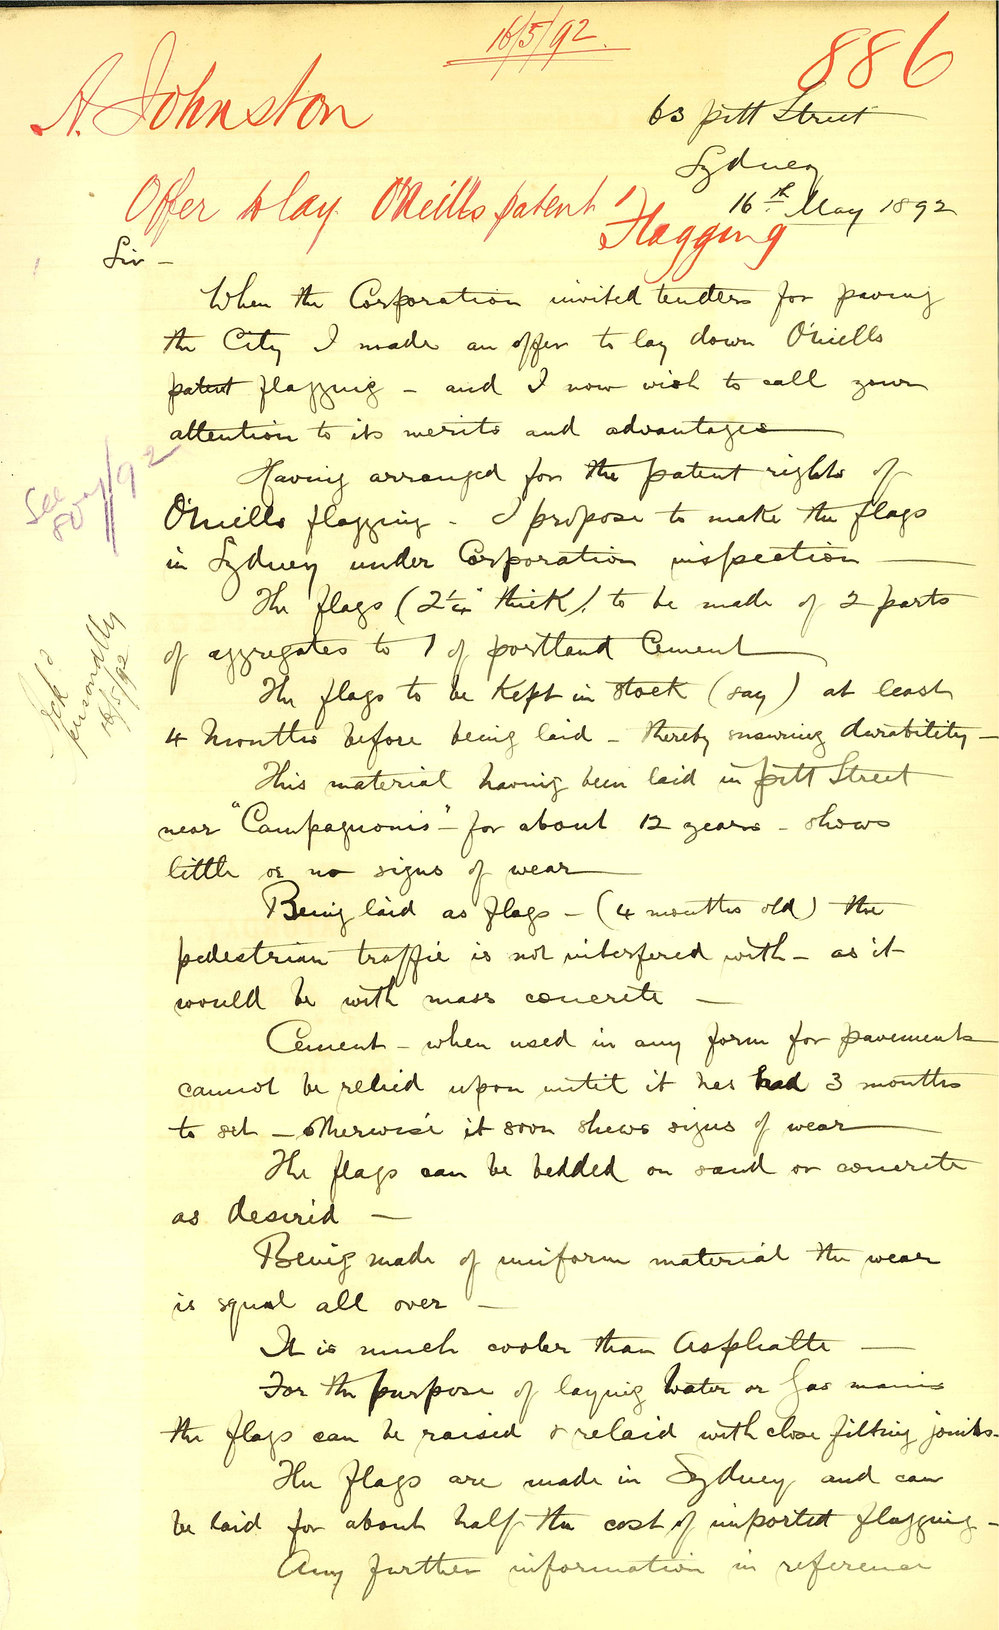 16/5/92.
886
A. Johnston
63 Pitt Street
Sydney
16th May 1892
Offer to lay O'Neills patent
Flagging
Sir –
When the Corporation invited tenders for paving
the City I made an offer to lay down O'Neills
patent flagging – and I now wish to call your
attention to its merits and advantages
Having arranged for the patent rights of
O'Neills flagging – I propose to make the flags
in Sydney under Corporation inspection
The flags (2¼" thick) to be made of 2 parts
of aggregates to 1 of portland Cement
The flags to be kept in stock (say) at least
4 Months before being laid – thereby ensuring durability –
This material having been laid in Pitt Street
near "Campagnonis" – for about 12 years – shows
little or no signs of wear
Being laid as flags – (4 months old) the
pedestrian traffic is not interfered with – as it
would be with mass concrete –
Cement – when used in any form for pavements
cannot be relied upon until it has had 3 months
to set – otherwise it soon shews signs of wear
The flags can be bedded on sand or concrete
as desired –
Being made of uniform material the wear
is equal all over –
It is much cooler than Asphalte –
For the purpose of laying Water or Gas mains
the flags can be raised & relaid with close fitting joints –
The flags are made in Sydney and can
be laid for about half the cost of imported flagging –
Any further information in reference
See
/92
Ackd
personally
16/5/92